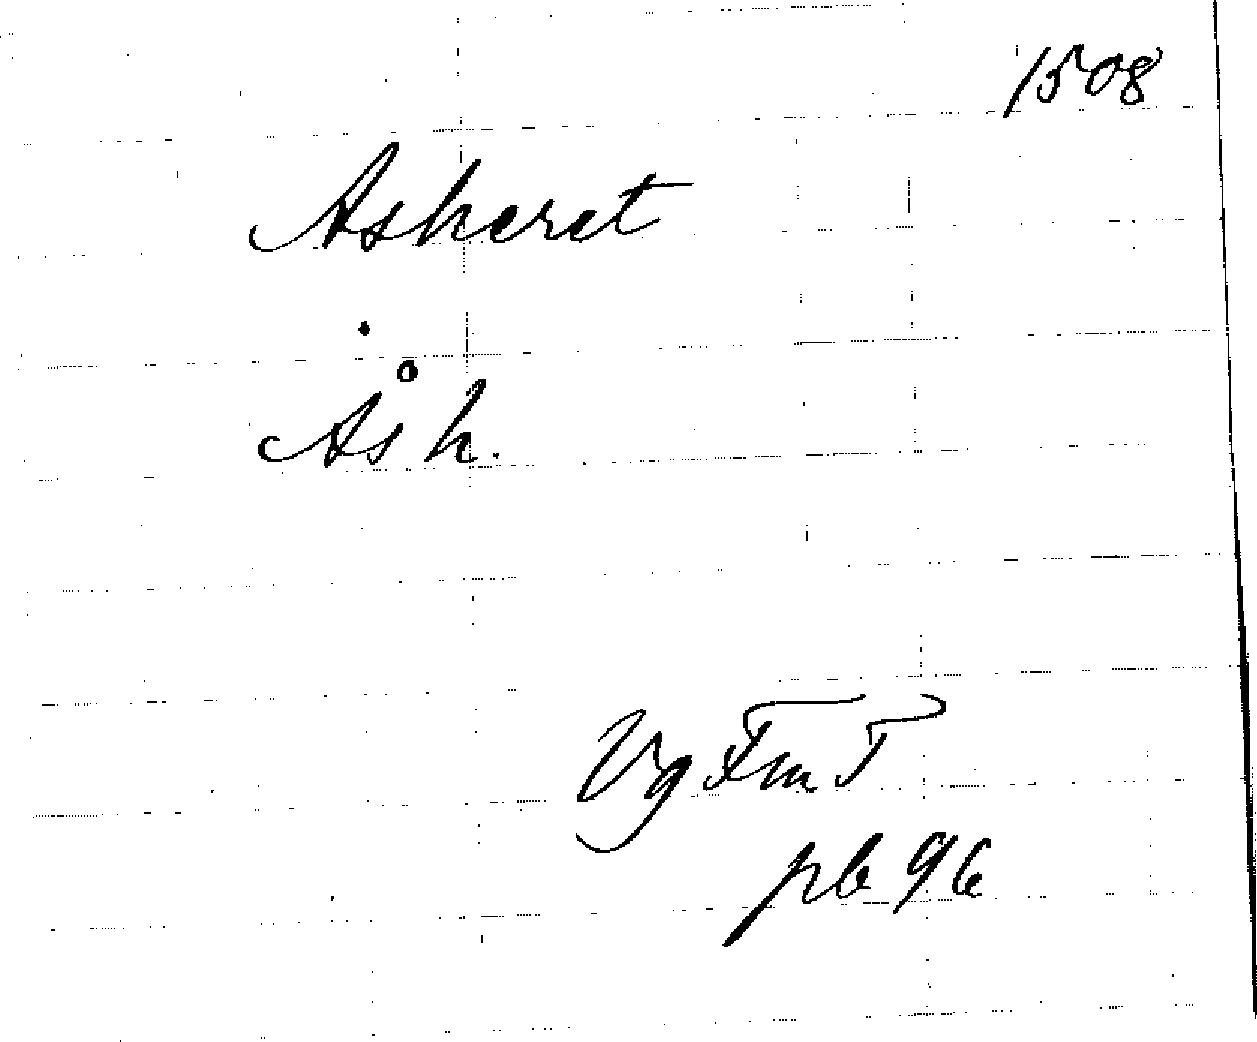 1508
Asheret
Ås h.
Vg FmT
pb 96